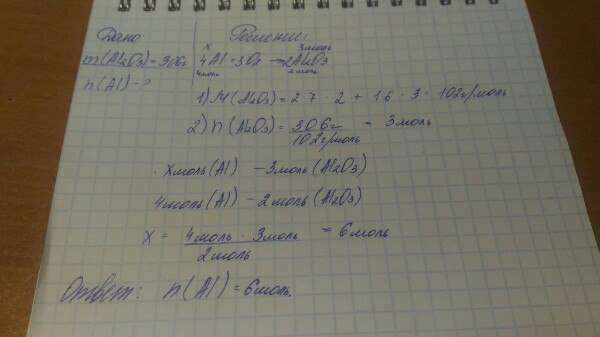 Дано Решение:
m(Al₂O₃)=306г
n(Al)-?
x 3моль
4Al+3O₂→2Al₂O₃
4моль 2моль
1) M(Al₂O₃)=27·2+16·3=102г/моль
2) n(Al₂O₃)=306г/102г/моль = 3моль
xмоль(Al) - 3моль(Al₂O₃)
4моль(Al) - 2моль(Al₂O₃)
x = 4моль · 3моль / 2моль = 6моль
Ответ: n(Al)=6моль.